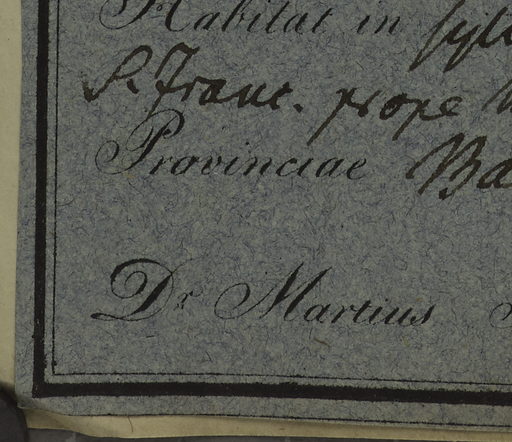 Habitat in
S. Franc. prope
Provinciae
Dr Martius